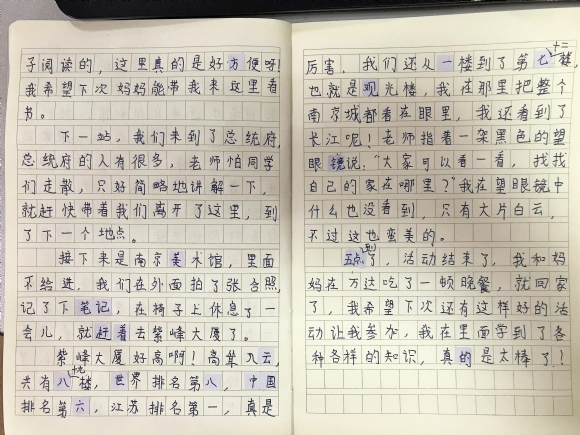 子阅读的，这里真的是好方便呀！
我希望下次妈妈能带我来这里看
书。
下一站，我们来到了总统府，
总统府的人有很多，老师怕同学
们走散，只好简略地讲解一下，
就赶快带着我们离开了这里，到
了下一个地点。
接下来是南京美术馆，里面
不给进，我们在外面拍了张合照，
记了下笔记，在椅子上休息了一
会儿，就赶着去紫峰大厦了。
紫峰大厦好高啊！高耸入云，
共有八十九楼，世界排名第八，中国
排名第六，江苏排名第一，真是
厉害，我们还从一楼到了第七十二楼，
也就是观光楼，我在那里把整个
南京城都看在眼里，我还看到了
长江呢！老师指着一架黑色的望
眼镜说：“大家可以看一看，找找
自己的家在哪里？”我在望眼镜中
什么也没看到，只有大片白云，
不过这也蛮美的。
五点到了，活动结束了，我和妈
妈在万达吃了一顿晚餐，就回家
了，我希望下次还有这样好的活
动让我参加，我在里面学到了各
种各样的知识，真的是太棒了！